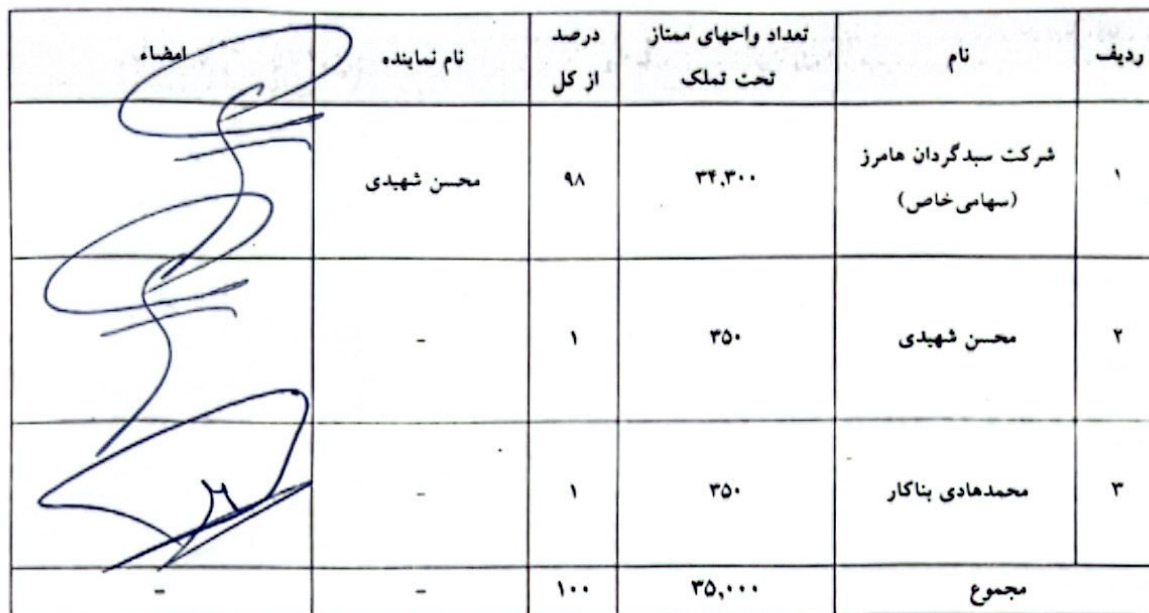 ردیف نام تعداد واحهای ممتاز تحت تملک درصد از کل نام نماینده امضاء
۱ شرکت سبدگردان هامرز (سهامی خاص) ۳۴,۳۰۰ ۹۸ محسن شهیدی
۲ محسن شهیدی ۳۵۰ ۱ -
۳ محمدهادی بناکار ۳۵۰ ۱ -
مجموع ۳۵,۰۰۰ ۱۰۰ - -